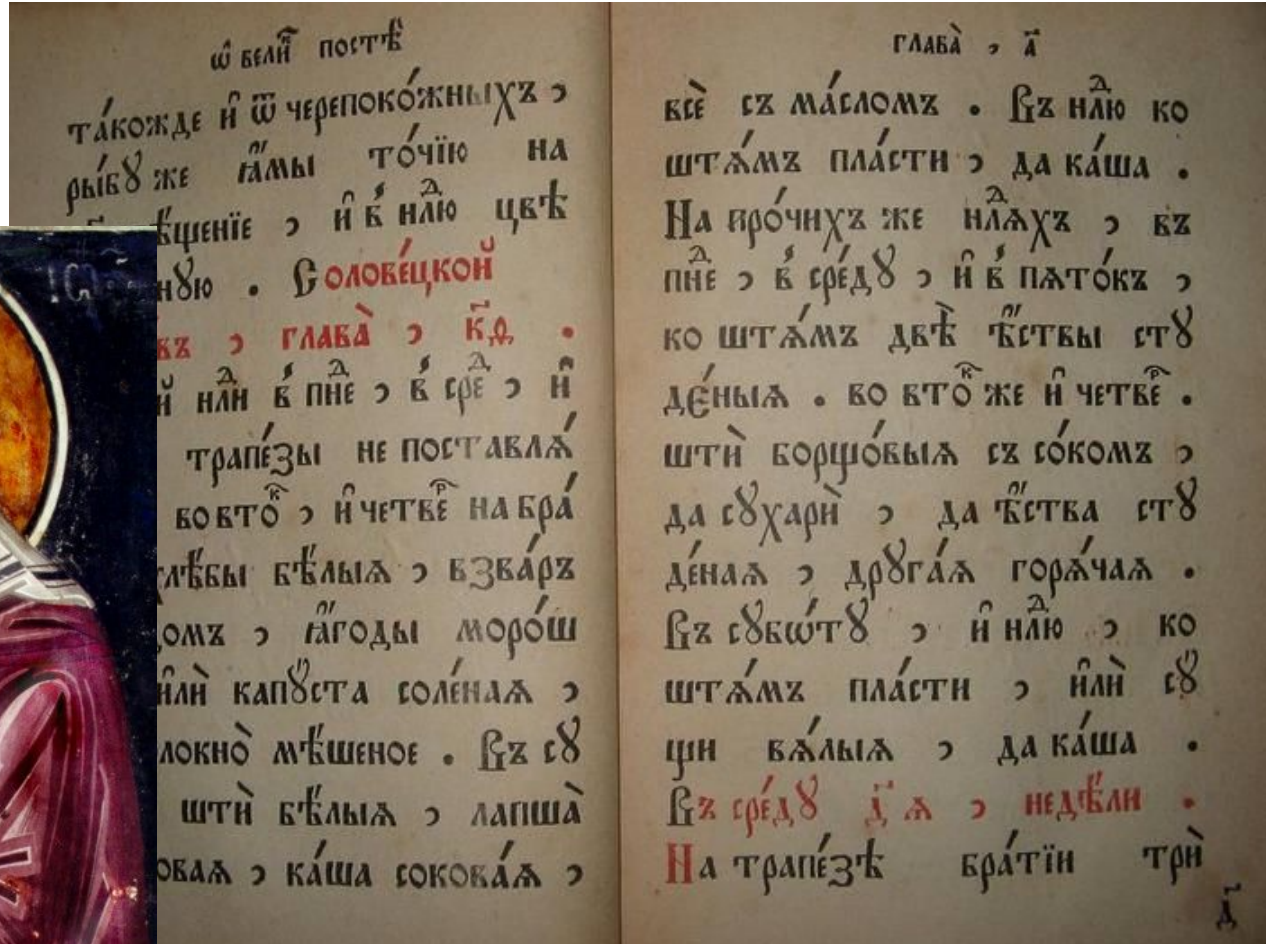 ѡ҆ вели́ⷨ постѣ̀
та́кожде и҆ ѿ черепоко́жныхъ ,
ры́бꙋ же ꙗ҆́мы то́чїю на
ѣ́щенїе , и҆ в̾ нлⷣю цвѣ
нꙋю . Солове́цкой
въ , глава̀ , к҃д .
й нлⷣи в̾ пнⷣе , в̾ среⷣ , и҆
трапе́зы не поставлѧ́
во втоⷦ҇ , и҆ четвеⷬ҇ на бра́
хлѣ́бы бѣ́лыѧ , взва́ръ
домъ , ꙗ҆́годы моро́ш
и҆лѝ капꙋ́ста соле́наѧ ,
локно̀ мѣ́шеное . Въ сꙋ
штѝ бѣ́лыѧ , лапша̀
оваѧ , ка́ша сокова́ѧ ,
глава̀ , а҃
всѐ съ ма́сломъ . Въ нлⷣю ко
штѧ́мъ пла́сти , да ка́ша .
На про́чихъ же нлⷣѧхъ , въ
пнⷣе , в̾ сре́дꙋ , и҆ в̾ пѧто́къ ,
ко штѧ́мъ двѣ̀ ѣ҆́ствы стꙋ
де́ныѧ . во втоⷦ҇ же и҆ четвеⷬ҇ .
штѝ борщо́выѧ съ со́комъ ,
да сꙋхарѝ , да ѣ҆́ства стꙋ
де́наѧ , дрꙋга́ѧ горѧ́чаѧ .
Въ сꙋбѡ́тꙋ , и҆ нлⷣю , ко
штѧ́мъ пла́сти , и҆лѝ сꙋ́
щи вѧ́лыѧ , да ка́ша .
Въ сре́дꙋ д҃ ѧ , недѣ́ли .
На трапе́зѣ бра́тїи трѝ
д҃